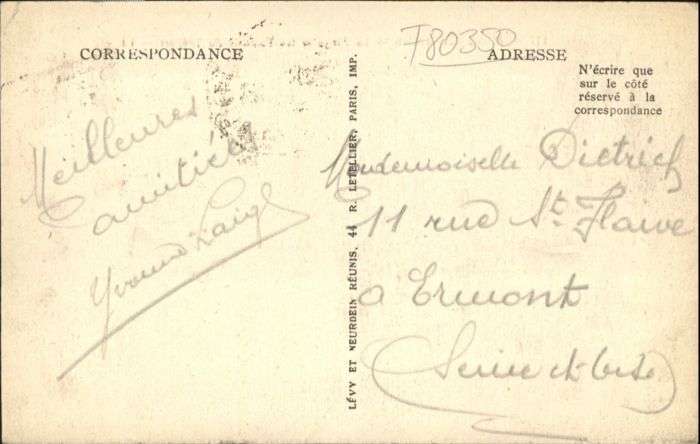 F80350
CORRESPONDANCE
ADRESSE
N'écrire que
sur le côté
réservé à la
correspondance
Meilleures
amitiés
Yvonne
LÉVY ET NEURDEIN RÉUNIS, 44 R. LETELLIER, PARIS, IMP.
Mademoiselle Dietrich
11 rue St. Flaive
à Ermont
Seine et Oise